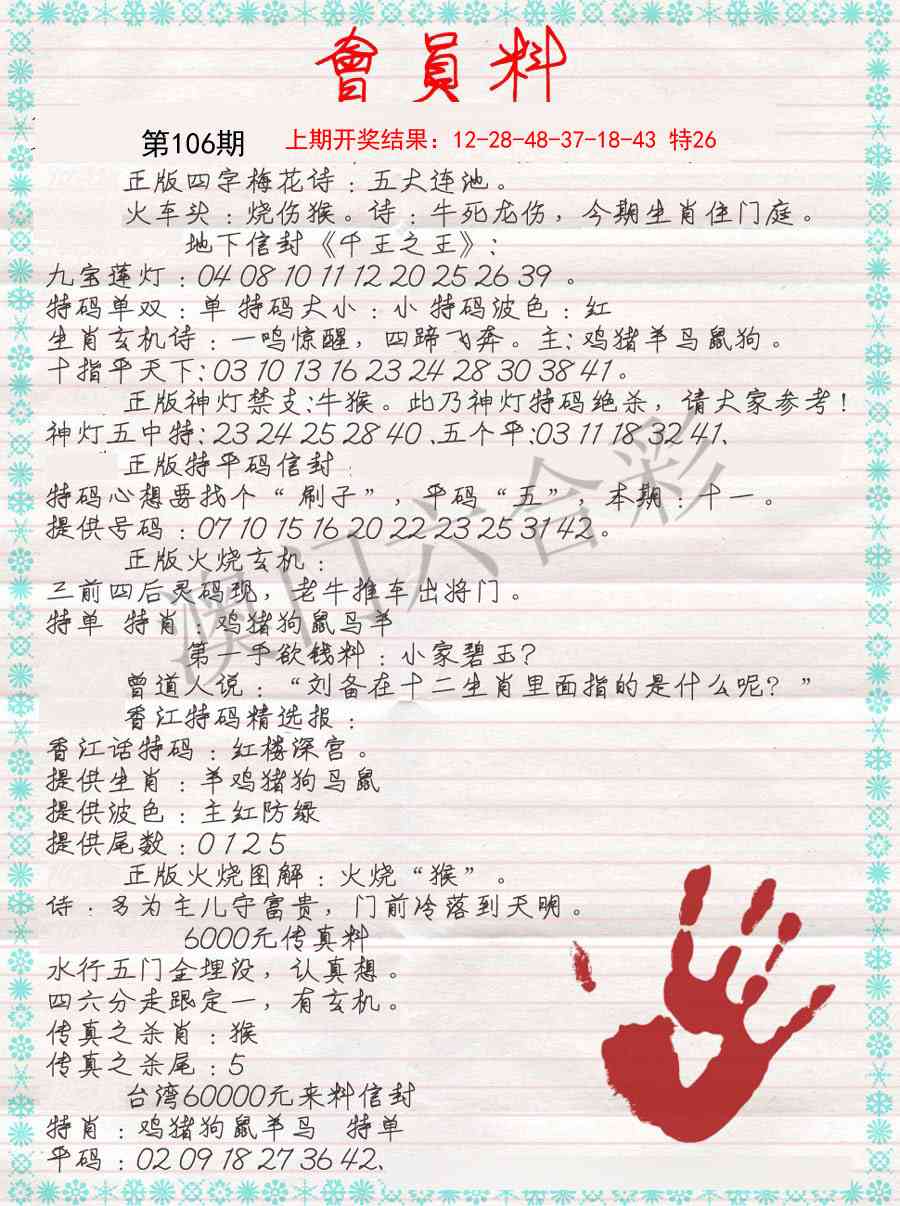 會員料
第106期 上期开奖结果：12-28-48-37-18-43 特26
正版四字梅花诗：五大连池。
火车头：烧伤猴。诗：牛死龙伤，今期生肖住门庭。
地下信封《千王之王》：
九宝莲灯：04 08 10 11 12 20 25 26 39 。
特码单双：单 特码大小：小 特码波色：红
生肖玄机诗：一鸣惊醒，四蹄飞奔。主: 鸡猪羊马鼠狗。
十指平天下: 03 10 13 16 23 24 28 30 38 41。
正版神灯禁支:牛猴。此乃神灯特码绝杀，请大家参考！
神灯五中特: 23 24 25 28 40 、五个平:03 11 18 32 41、
正版特平码信封：
特码心想要找个“刷子”，平码“五”，本期：十一。
提供号码：07 10 15 16 20 22 23 25 31 42 。
正版火烧玄机：
三前四后灵码现，老牛推车出将门。
特单 特肖：鸡猪狗鼠马羊
第一手欲钱料：小家碧玉？
曾道人说：“刘备在十二生肖里面指的是什么呢？”
香江特码精选报：
香江话特码：红楼深宫。
提供生肖：羊鸡猪狗马鼠
提供波色：主红防绿
提供尾数：0 1 2 5
正版火烧图解：火烧“猴”。
诗：多为主儿守富贵，门前冷落到天明。
6000元传真料
水行五门金埋没，认真想。
四六分走跟定一，有玄机。
传真之杀肖：猴
传真之杀尾：5
台湾60000元来料信封
特肖：鸡猪狗鼠羊马 特单
平码：02 09 18 27 36 42、
澳门六合彩